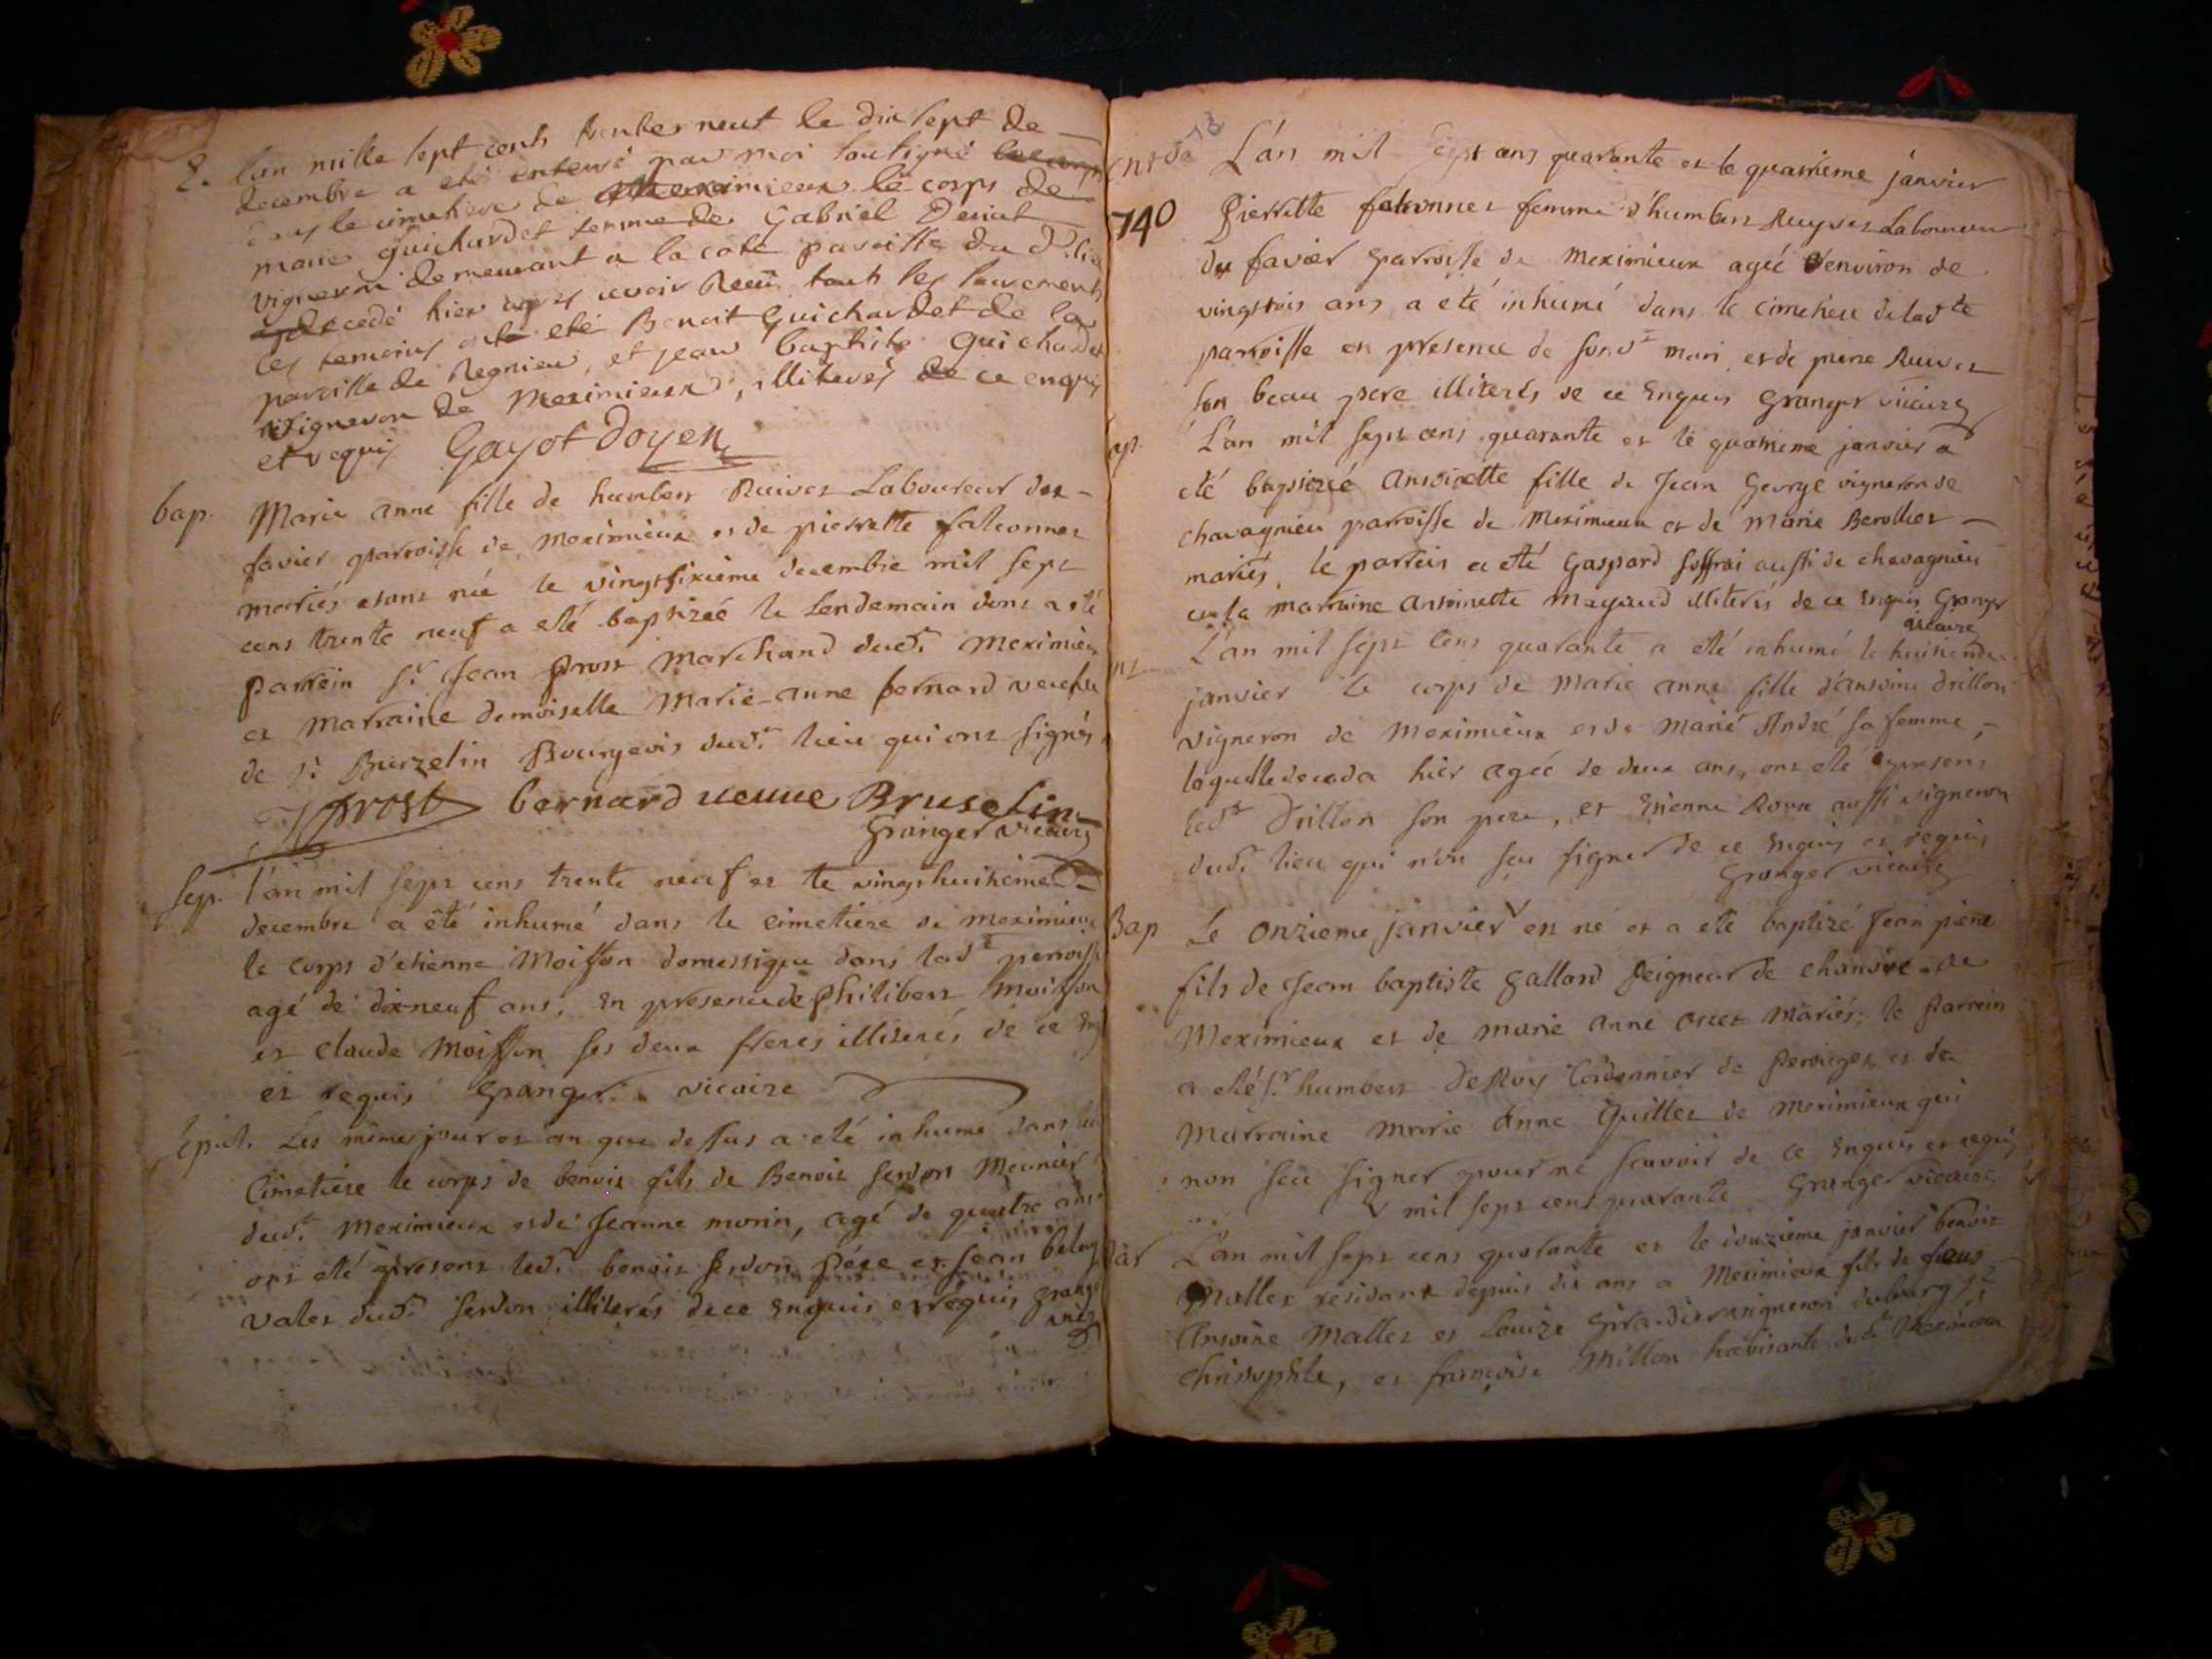 E. l'an mille sept cents trente neuf le dix sept de
decembre a eté enterré par moi sousigné
dans le cimetiere de Meximieux le corps de
marie guichardet femme de Gabriel
vigneron demeurant a la cote paroisse du d. lieu
decedé hier apres avoir Receu touts les sacrements
les temoins ont eté Benoit Guichardet de la
paroisse de Regnieu, et jean baptiste Guichardet
vigneron de Meximieux, illiterés de ce enquis
et requis Gayot Doyen
bap. Marie anne fille de humbert Ruivet Laboureur de
favier parroisse de meximieux et de pierrette falconnet
mariés etant née le vingtsixieme decembre mil sept
cens trente neuf a eté baptizeé le Lendemain dont a eté
parrein sr. Jean prost Marchand dudt. Meximieux
et Marraine demoiselle Marie-anne bernard veuve
de sr. Burzelin Bourgeois dudt. lieu qui ont signés
J prost bernard veuve Bruselin
Granger vicaire
Sep. l'an mil sept cens trente neuf et le vingthuitieme
decembre a été inhumé dans le cimetiere de meximieux
le corps d'etienne Moisson domestique dans ladt. parroisse
agé de dixneuf ans, en presence de philibert Moisson
et claude Moisson ses deux freres illiterés de ce enq
et requis Granger vicaire
Sepult. Les même jour et an que dessus a eté inhumé dans led
Cimetiere le corps de benoit fils de Benoit serdon Meunier
dudt. Meximieux et de Jeanne morin, agé de quatre ans
ont eté present ledt. benoit serdon pere et Jean
valet dudt. serdon illiterés de ce enquis et requis Granger
vic
L'an mil sept cens quarante et le quatrieme janvier
740 Pierrette falconnet femme d'humbert Ruyvet Laboureur
du favier parroisse de Meximieux ageé d'environ de
vingt trois ans a eté inhumé dans le cimetiere de ladte
parroisse en presence de sondt mari et de pierre Ruivet
son beau pere illiterés de ce enquis Granger vicaire
L'an mil sept cens quarante et le quatrieme janvier a
eté baptizeé Antoinette fille de Jean George vigneron de
chavagnieu parroisse de Meximieux et de Marie Berollier
mariés, le parrein a eté Gaspard suffrai aussi de chavagnieu
et la marraine antoinette Mayaud illiterés de ce enquis Granger
vicaire
L'an mil sept cens quarante a eté inhumé le huitieme
janvier le corps de Marie anne fille d'antoine Drillon
vigneron de Meximieux et de Marie André sa femme,
laquelle deceda hier ageé de deux ans, ont eté present
ledt Drillon son pere, et Etienne Roux aussi vigneron
dudt. lieu qui n'on seu signer de ce enquis et requis
Granger vicaire
Bap Le onzieme janvier est né et a eté baptizé Jean pierre
fils de Jean baptiste gallard seigneur de de
Meximieux et de marie anne mariés; le Parrein
a eté sr. humbert DeRoy Cordonnier de Perouges et de
Marraine Marie Anne Guillet de meximieux qui
non seu signer pour ne scavoir de ce enquis et requis
mil sept cens quarante Granger vicaire
L'an mil sept cens quarante et le douzieme janvier benoit
Mallet residant depuis dix ans a Meximieux fils de feus
Antoine Mallet et Louize vigneron du bourg st
Christophle, et françoise Millon habitante dudt Meximieux